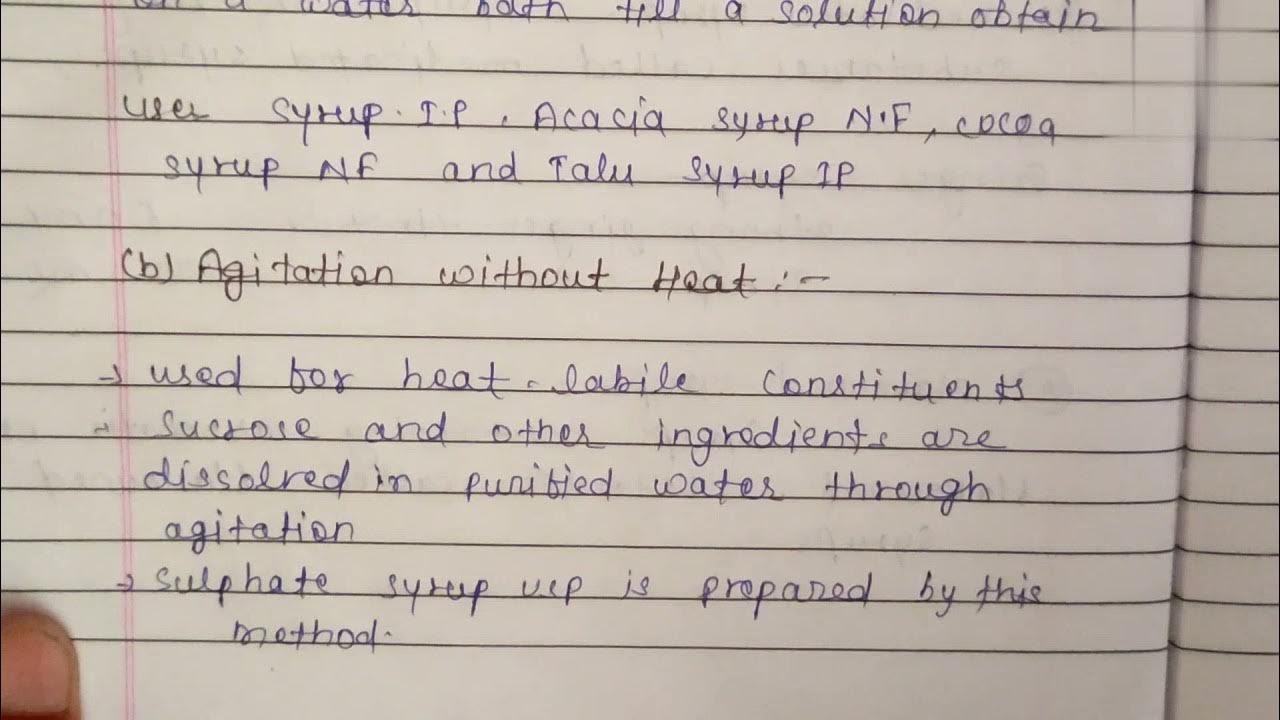 on a water bath till a solution obtain
user syrup. I.P, Acacia syrup N.F, cocoa
syrup NF and Talu syrup IP
(b) Agitation without Heat :-
→ used for heat-labile constituents
sucrose and other ingredients are
dissolved in purified water through
agitation
→ sulphate syrup USP is prepared by this
method.